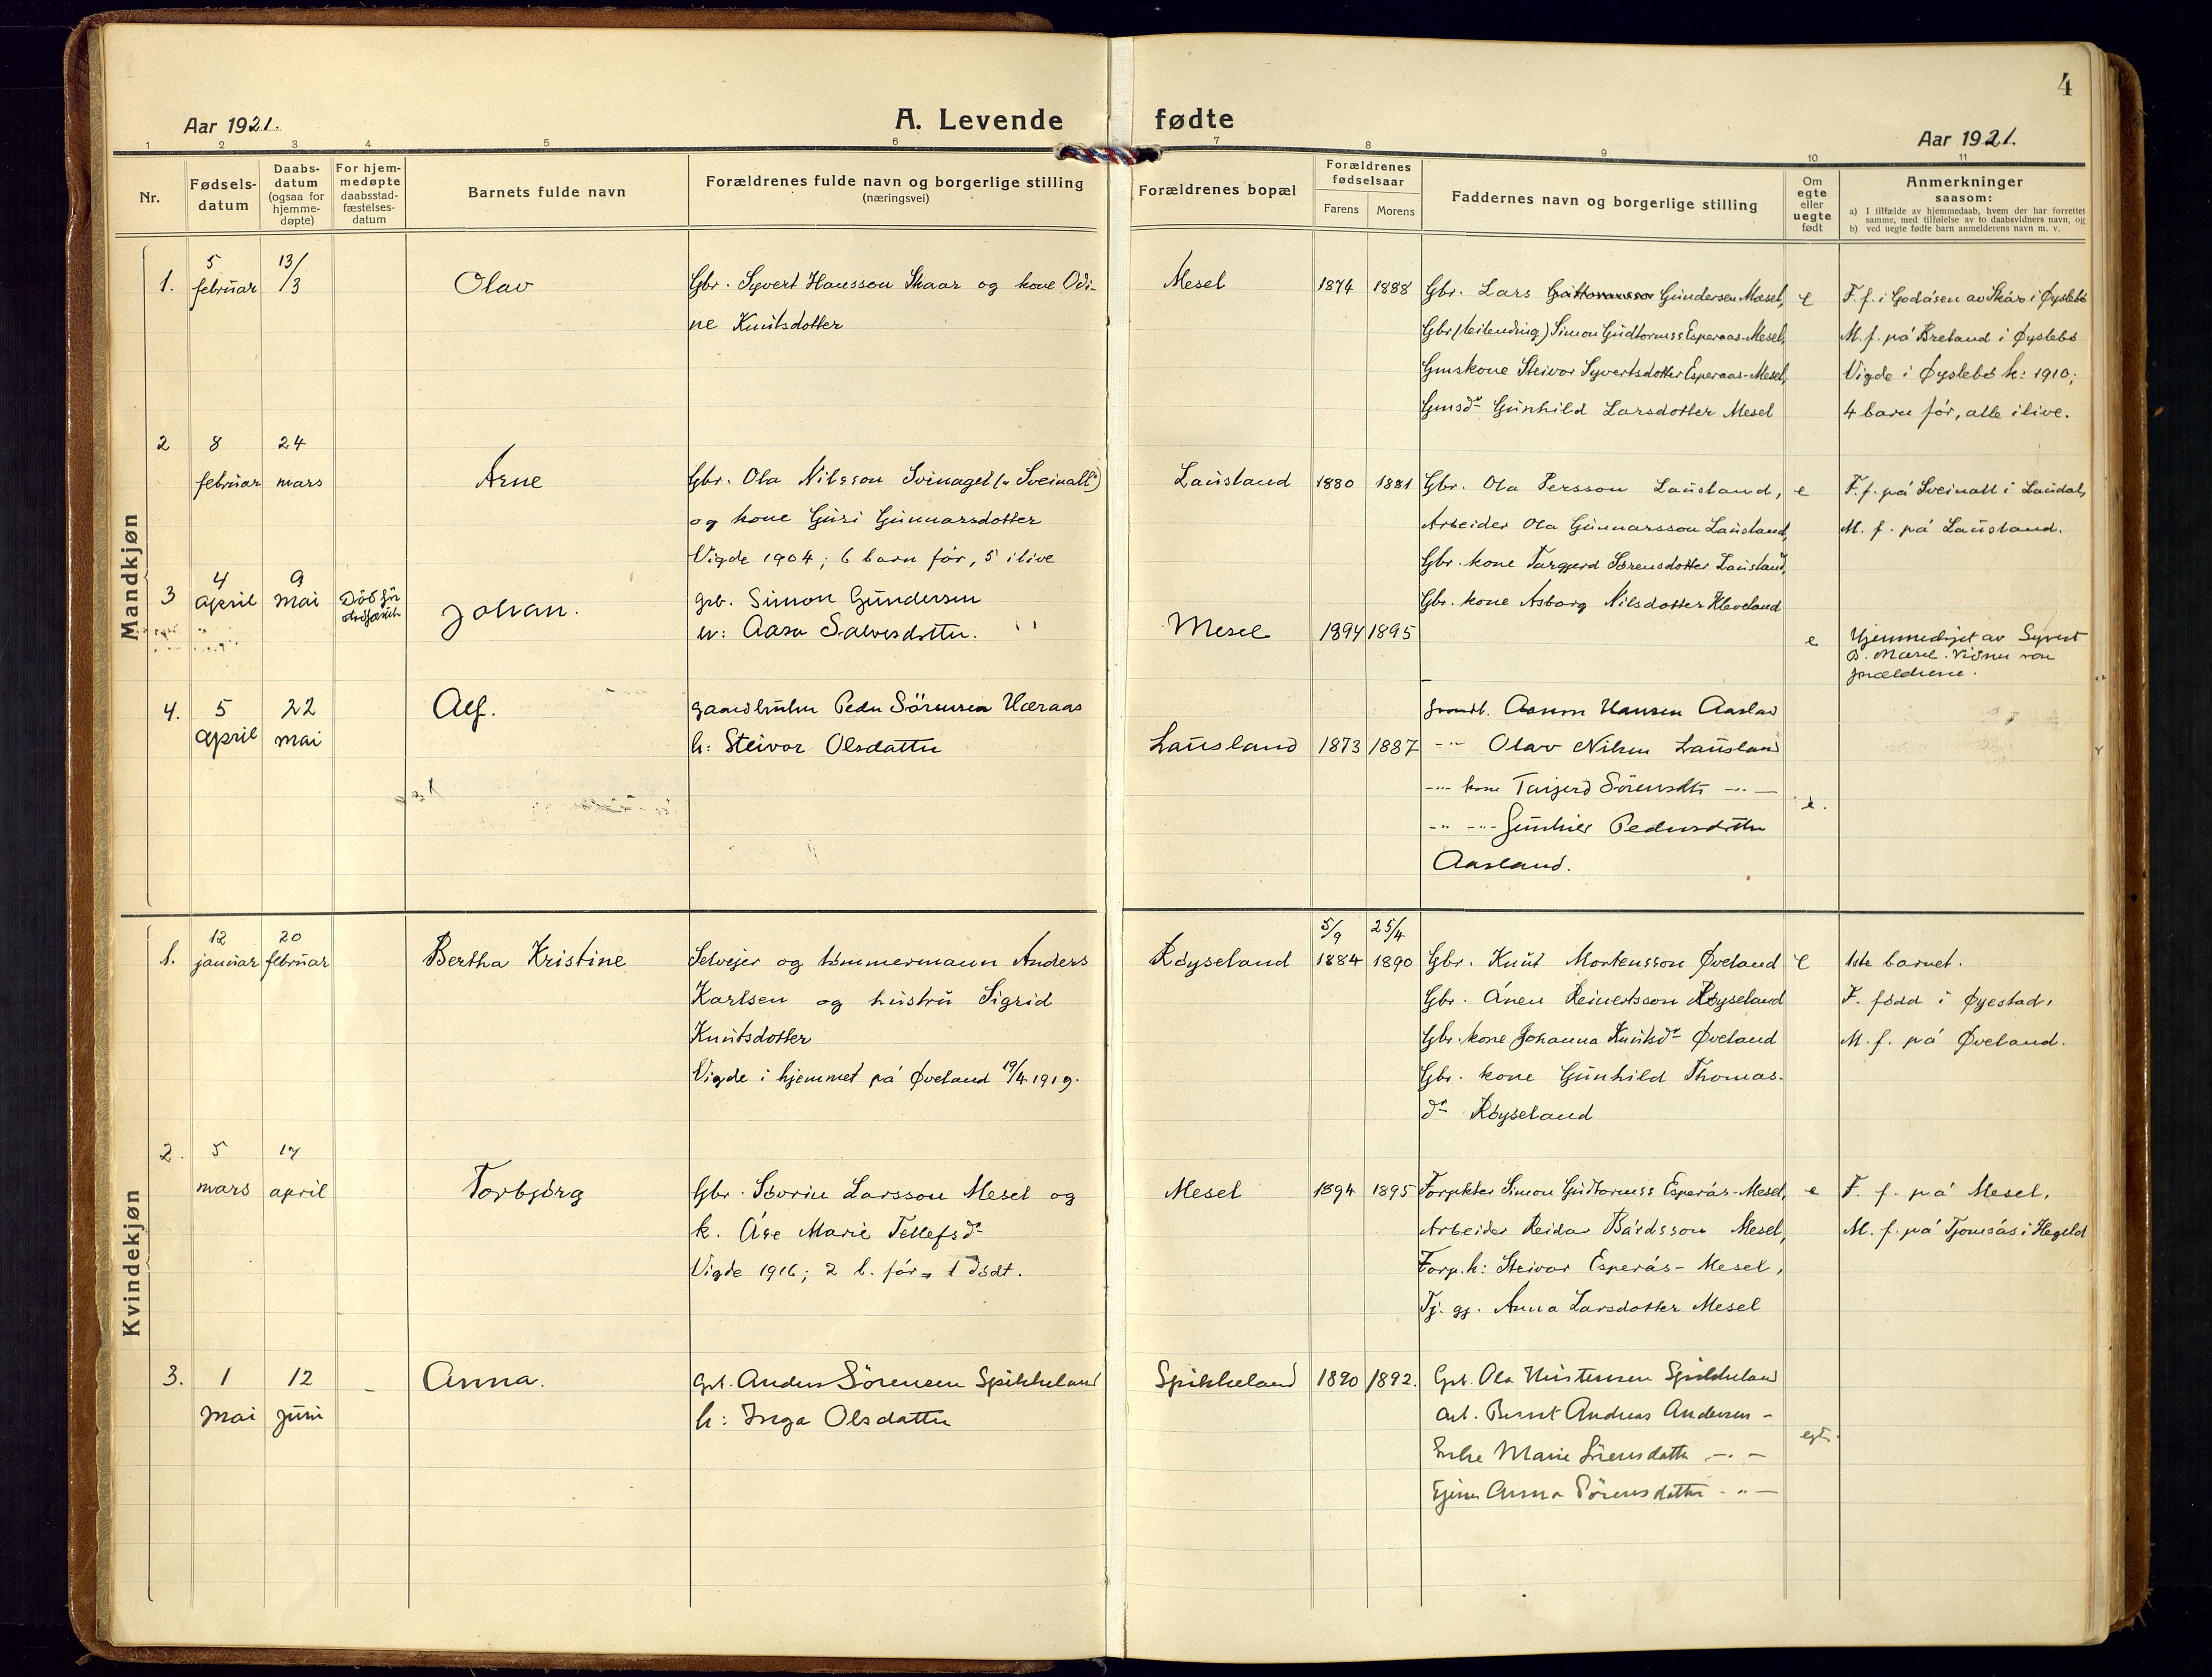 4
A. Levende fødte
Aar 1921.
Aar 1921.
1 2 3 4 5 6 7 8 9 10 11
Nr.
Fødsels-
datum
Daabs-
datum
(ogsaa for
hjemme-
døpte)
For hjem-
medøpte
daabsstad-
fæstelses-
datum
Barnets fulde navn
Forældrenes fulde navn og borgerlige stilling
(næringsvei)
Forældrenes bopæl
Forældrenes
fødselsaar
Farens Morens
Faddernes navn og borgerlige stilling
Om
egte
eller
uegte
født
Anmerkninger
saasom:
a) I tilfælde av hjemmedaab, hvem der har forrettet
samme, med tilføielse av to daabsvidners navn, og
b) ved uegte fødte barn anmelderens navn m. v.
Mandkjøn
1.
5
februar
13/3
Olav
Gbr. Syvert Hansson Skaar og kone Odi-
ne Knutsdotter
Mesel
1874 1888
Gbr. Lars Gundersen Mesel,
Gbr (leilending) Simon Gudtormss Esperaas-Mesel,
Gmskone Steivor Syvertsdotter Esperaas-Mesel,
Gmsdr Gunhild Larsdotter Mesel
e
F. f. i Godåsen av Skår i Øyslebø
M. f. på Breland i Øyslebø
Vigde i Øyslebø k: 1910;
4 barn før, alle ilive.
2
8
februar
24
mars
Arne
Gbr. Ola Nilsson Svinagel (Sveinall)
og kone Guri Gunnarsdotter
Vigde 1904; 6 barn før, 5 ilive
Lausland
1880 1881
Gbr. Ola Persson Lausland,
Arbeider Ola Gunnarsson Lausland,
Gbr. kone Targjerd Sørensdotter Lausland,
Gbr. kone Asborg Nilsdotter Kleveland
e
F. f. på Sveinall i Laudal,
M. f. på Lausland.
3
4
april
9
mai
Död för
Johan.
grb. Simon Gundersen
Aasa Salvesdatter.
Mesel
1894 1895
e
Hjemmedøpt av Syvert
forældrene.
4.
5
april
22
mai
Alf.
gaardbruker Peder Sörensen Haraas
h: Steivor Olsdatter
Lausland
1873 1887
gaardb. Aanon Hansen Aasland
-"- Olav Nilsen Lausland
-"- kone Targjerd Sörensdtr -"-
-"- -"- Gunhild Pedersdatter
Aasland.
e.
Kvindekjøn
1.
12
januar
20
februar
Bertha Kristine
Selvejer og tømmermann Anders
Karlsen og hustru Sigrid
Knutsdotter
Vigde i hjemmet på Øveland 19/4 1919.
Røyseland
5/9
1884
25/4
1890
Gbr. Knut Mortensson Øveland
Gbr. Ånen Reinertsson Røyseland
Gbr. kone Johanna Knutsdr Øveland
Gbr. kone Gunhild Thomas-
dr Røyseland
e
1ste barnet.
F. född i Øyestad,
M. f. på Øveland.
2.
5
mars
17
april
Torbjørg
Gbr. Søvrin Larsson Mesel og
k. Åse Marie Tellefsdr
Vigde 1916; 2 b. før, 1 dødt.
Mesel
1894 1895
Forpakter Simon Gudtormss Esperås-Mesel,
Arbeider Reidar Bårdsson Mesel,
Forp. k: Steivor Esperås-Mesel,
Tj. gj. Anna Larsdotter Mesel
e
F. f. på Mesel,
M. f. på Tjomsås i Hegeld
3.
1
mai
12
juni
-
Anna.
Anders Sörensen Spikkeland
h: Inga Olsdatter
Spikkeland
1890 1892.
Ola Kristensen Spikkeland
Arb. Bernt Andreas Andersen -
Enke Marie Sörensdatter -"-
Anna Sörensdatter -"-
egte